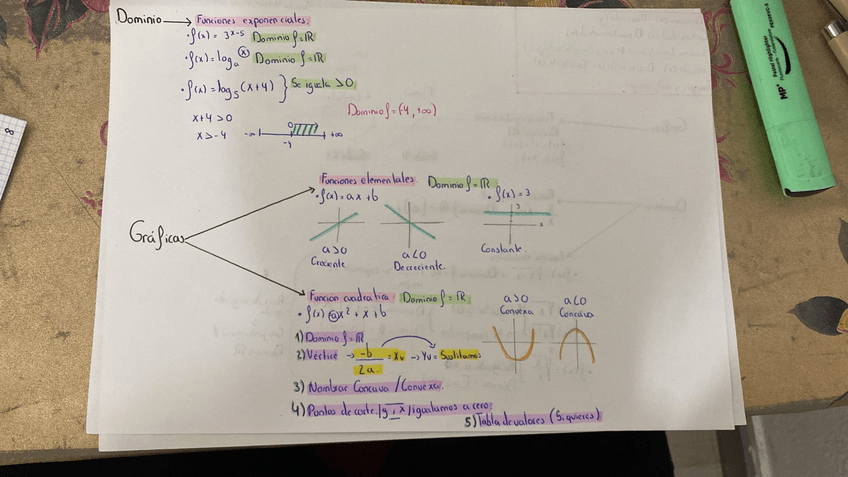 Dominio → Funciones exponenciales.
· f(x) = 3^(x-5) Dominio f = ℝ
· f(x) = log_a (x) Dominio f = ℝ
· f(x) = log_5 (x+4) } Se iguala >0
x+4 >0
x > -4
Dominio f = (-4, +∞)
-∞ 0 +∞
-4
Gráficas
Funciones elementales. Dominio f = ℝ
· f(x) = ax + b
· f(x) = 3
3
x
a>0
Creciente
a<0
Decreciente.
Constante.
Funcion cuadratica. Dominio f = ℝ
· f(x) = ax² + x + b
a>0
Convexa
a<0
Concava
1) Dominio f = ℝ
2) Vértice → -b/2a = Xv → Yv = Sustituimos
3) Nombrar Concava / Convexa.
4) Puntos de corte. / y , x / igualamos a cero.
5) Tabla de valores (Si quieres)
MP
Pastel highlighter
∞